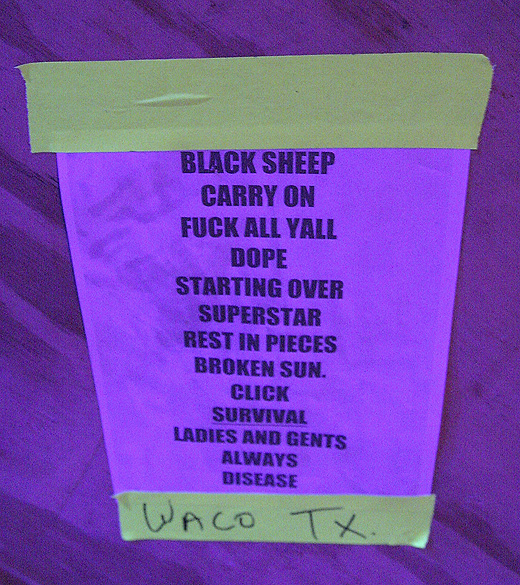 BLACK SHEEP
CARRY ON
FUCK ALL YALL
DOPE
STARTING OVER
SUPERSTAR
REST IN PIECES
BROKEN SUN.
CLICK
SURVIVAL
LADIES AND GENTS
ALWAYS
DISEASE
WACO TX.